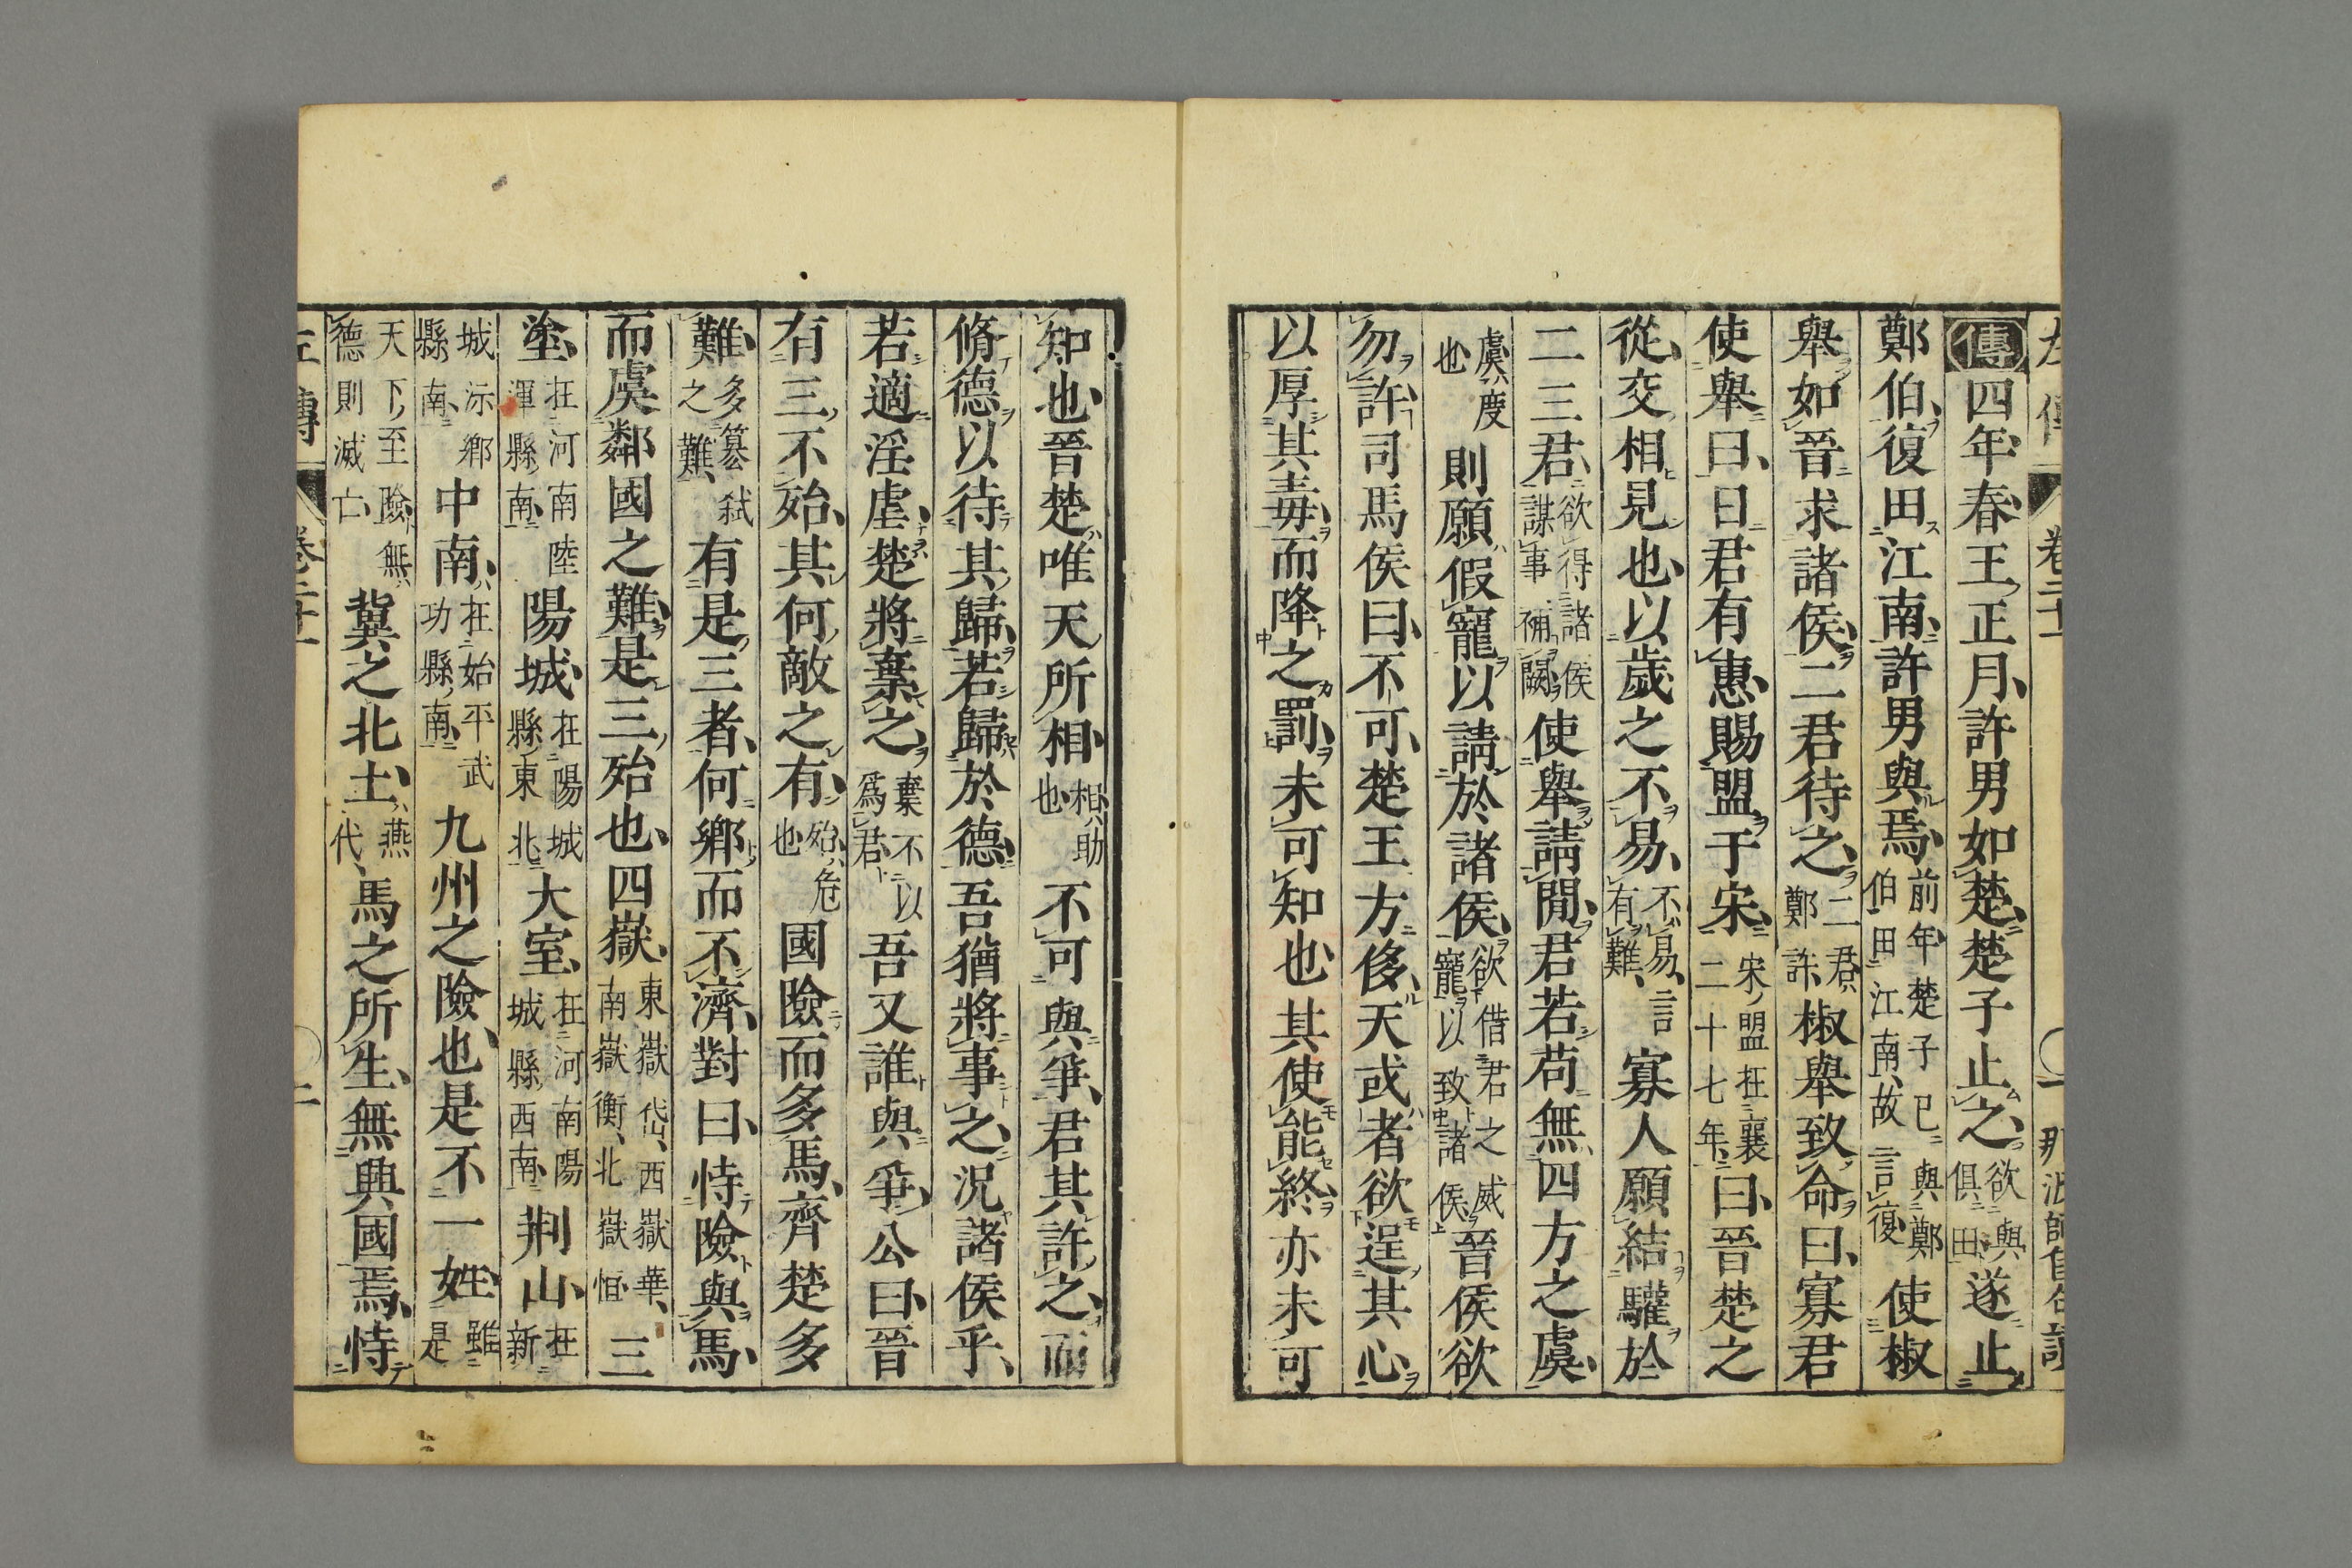 傳四年春王正月許男如楚楚子止之欲與俱田遂止
鄭伯復田江南許男與焉前年楚子已與鄭伯田江南故言復使椒
舉如晉求諸侯二君待之二君鄭許椒舉致命曰寡君
使舉曰日君有惠賜盟于宋宋盟在襄二十七年曰晉楚之
從交相見也以歲之不易不易言有難寡人願結驩於
二三君欲得諸侯謀事補闕使舉請閒君若苟無四方之虞
虞度也則願假寵以請於諸侯欲借君之威寵以致諸侯晉侯欲
勿許司馬侯曰不可楚王方侈天或者欲逞其心
以厚其毒而降之罰未可知也其使能終亦未可
知也晉楚唯天所相相助也不可與爭君其許之而
脩德以待其歸若歸於德吾猶將事之況諸侯乎
若適淫虐楚將棄之棄不以爲君吾又誰與爭公曰晉
有三不殆其何敵之有殆危也國險而多馬齊楚多
難多篡弑之難有是三者何鄉而不濟對曰恃險與馬
而虞鄰國之難是三殆也四嶽東嶽岱西嶽華南嶽衡北嶽恒三
塗在河南陸渾縣南陽城在陽城縣東北大室在河南陽城縣西南荆山在新
城沶鄉縣南中南在始平武功縣南九州之險也是不一姓雖是
天下至險無德則滅亡冀之北土燕代馬之所生無興國焉恃
左傳
卷二十一